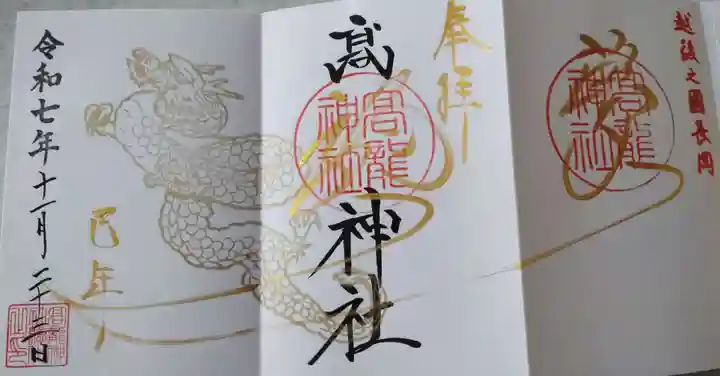 越後之國長岡
高龍神社
奉拝
髙
神社
高龍神社
己年
令和七年十一月二十三日